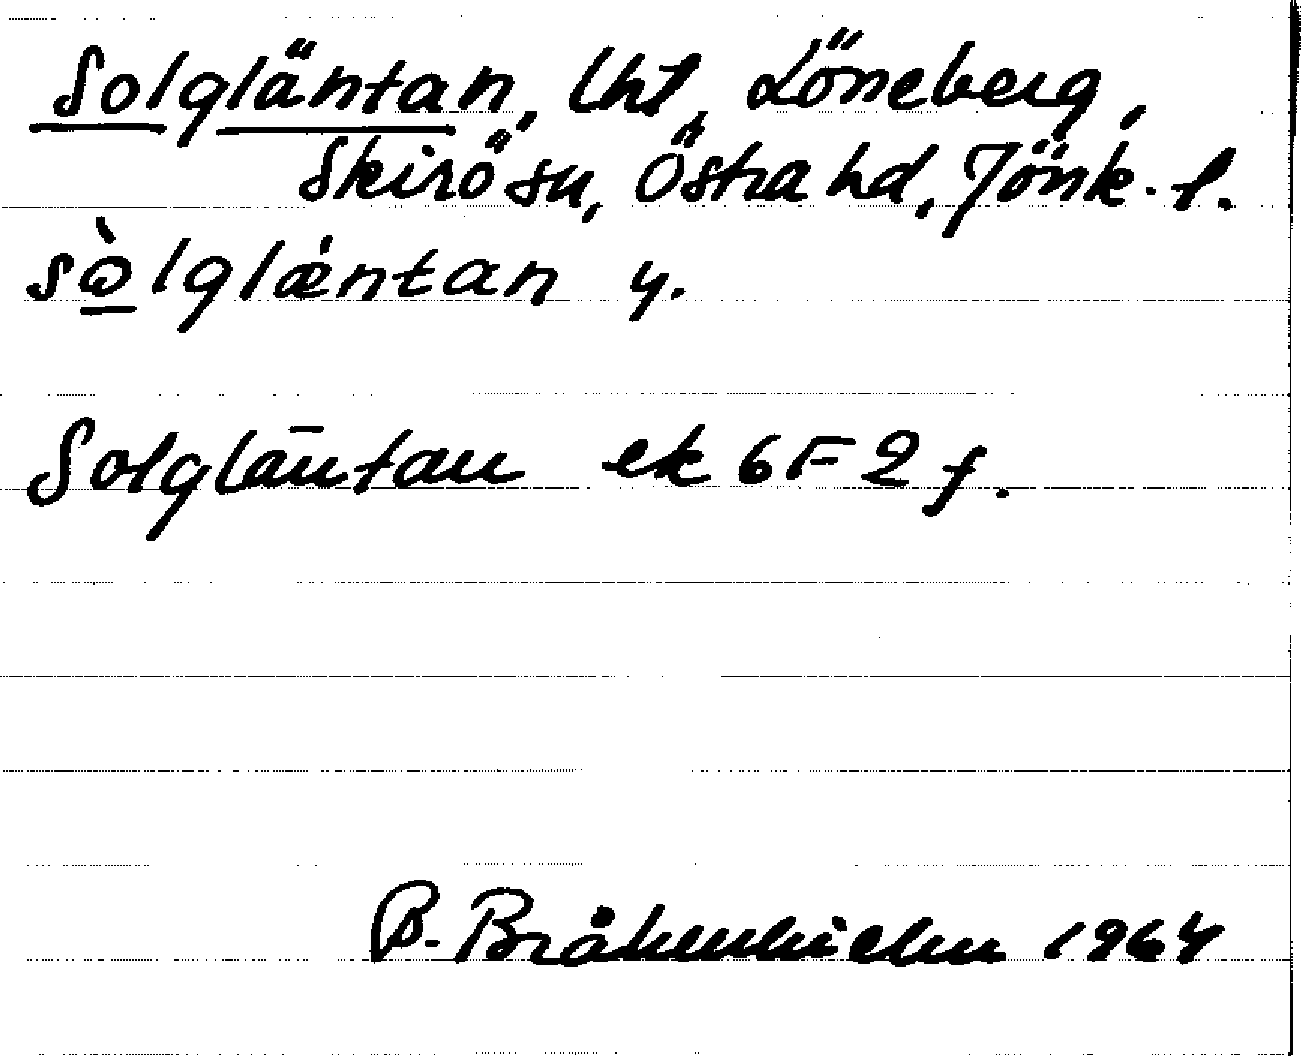 Solgläntan, lht, Löneberg,
Skirö sn, Östra hd, Jönk. l.
sò̲lglæ̍ntan y.
Solgläntan ek 6F 2f.
B. Bråkenhielm 1964